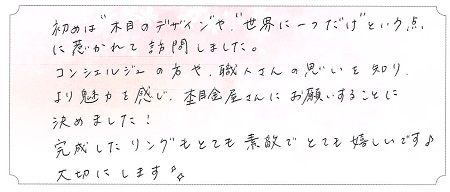 初めは"木目のデザイン"や、"世界に一つだけ"という点
に惹かれて訪問しました。
コンシェルジュの方や、職人さんの思いを知り、
より魅力を感じ、杢目金屋さんにお願いすることに
決めました！
完成したリングもとても素敵でとても嬉しいです♪
大切にします。